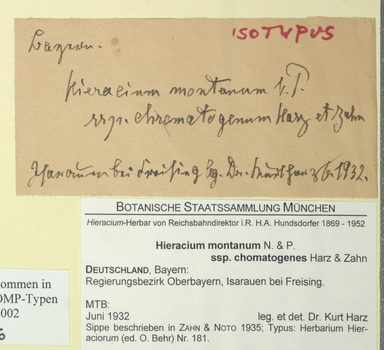 ISOTYPUS
Bayern.
Hieracium montanum N. P.
ssp. chromatogenum Harz et Zahn
Isarauen bei Freising lg. Dr. Kurt Harz 6. 1932.
BOTANISCHE STAATSSAMMLUNG MÜNCHEN
Hieracium-Herbar von Reichsbahndirektor i.R. H.A. Hundsdorfer 1869 - 1952
Hieracium montanum N. & P.
ssp. chomatogenes Harz & Zahn
DEUTSCHLAND, Bayern:
Regierungsbezirk Oberbayern, Isarauen bei Freising.
MTB:
Juni 1932 leg. et det. Dr. Kurt Harz
Sippe beschrieben in ZAHN & NOTO 1935; Typus: Herbarium Hier-
aciorum (ed. O. Behr) Nr. 181.
ommen in
OMP-Typen
002